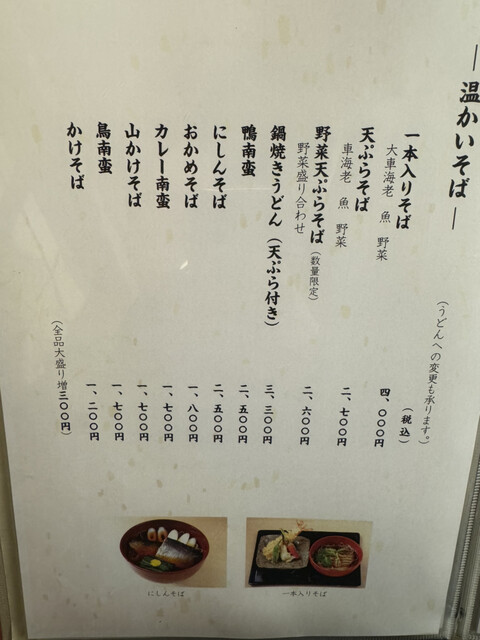 ―温かいそば―
（うどんへの変更も承ります。）
（税込）
一本入りそば 四、〇〇〇円
大車海老 魚 野菜
天ぷらそば 二、七〇〇円
車海老 魚 野菜
野菜天ぷらそば（数量限定） 二、六〇〇円
野菜盛り合わせ
鍋焼きうどん（天ぷら付き） 三、三〇〇円
鴨南蛮 二、五〇〇円
にしんそば 二、五〇〇円
おかめそば 一、八〇〇円
カレー南蛮 一、七〇〇円
山かけそば 一、七〇〇円
鳥南蛮 一、七〇〇円
かけそば 一、二〇〇円
（全品大盛り増三〇〇円）
にしんそば
一本入りそば